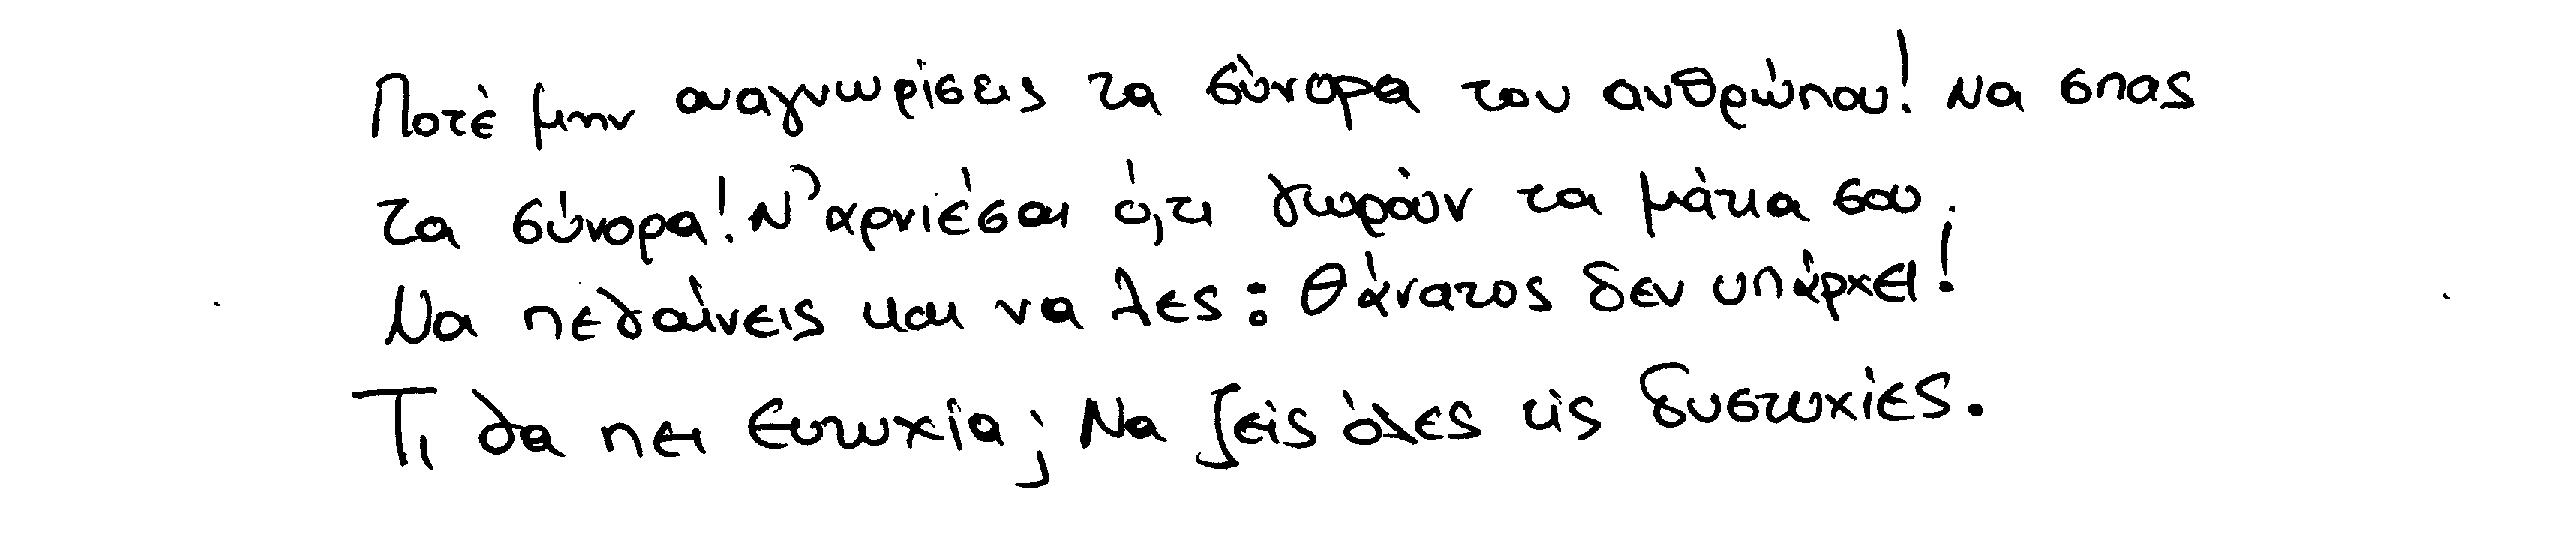 Ποτέ μην αναγνωρίσεις τα σύνορα του ανθρώπου! Να σπας
τα σύνορα! Ν' αρνιέσαι ό,τι θωρούν τα μάτια σου.
Να πεθαίνεις και να λες: Θάνατος δεν υπάρχει!
Τι θα πει ευτυχία; Να ζεις όλες τις δυστυχίες.